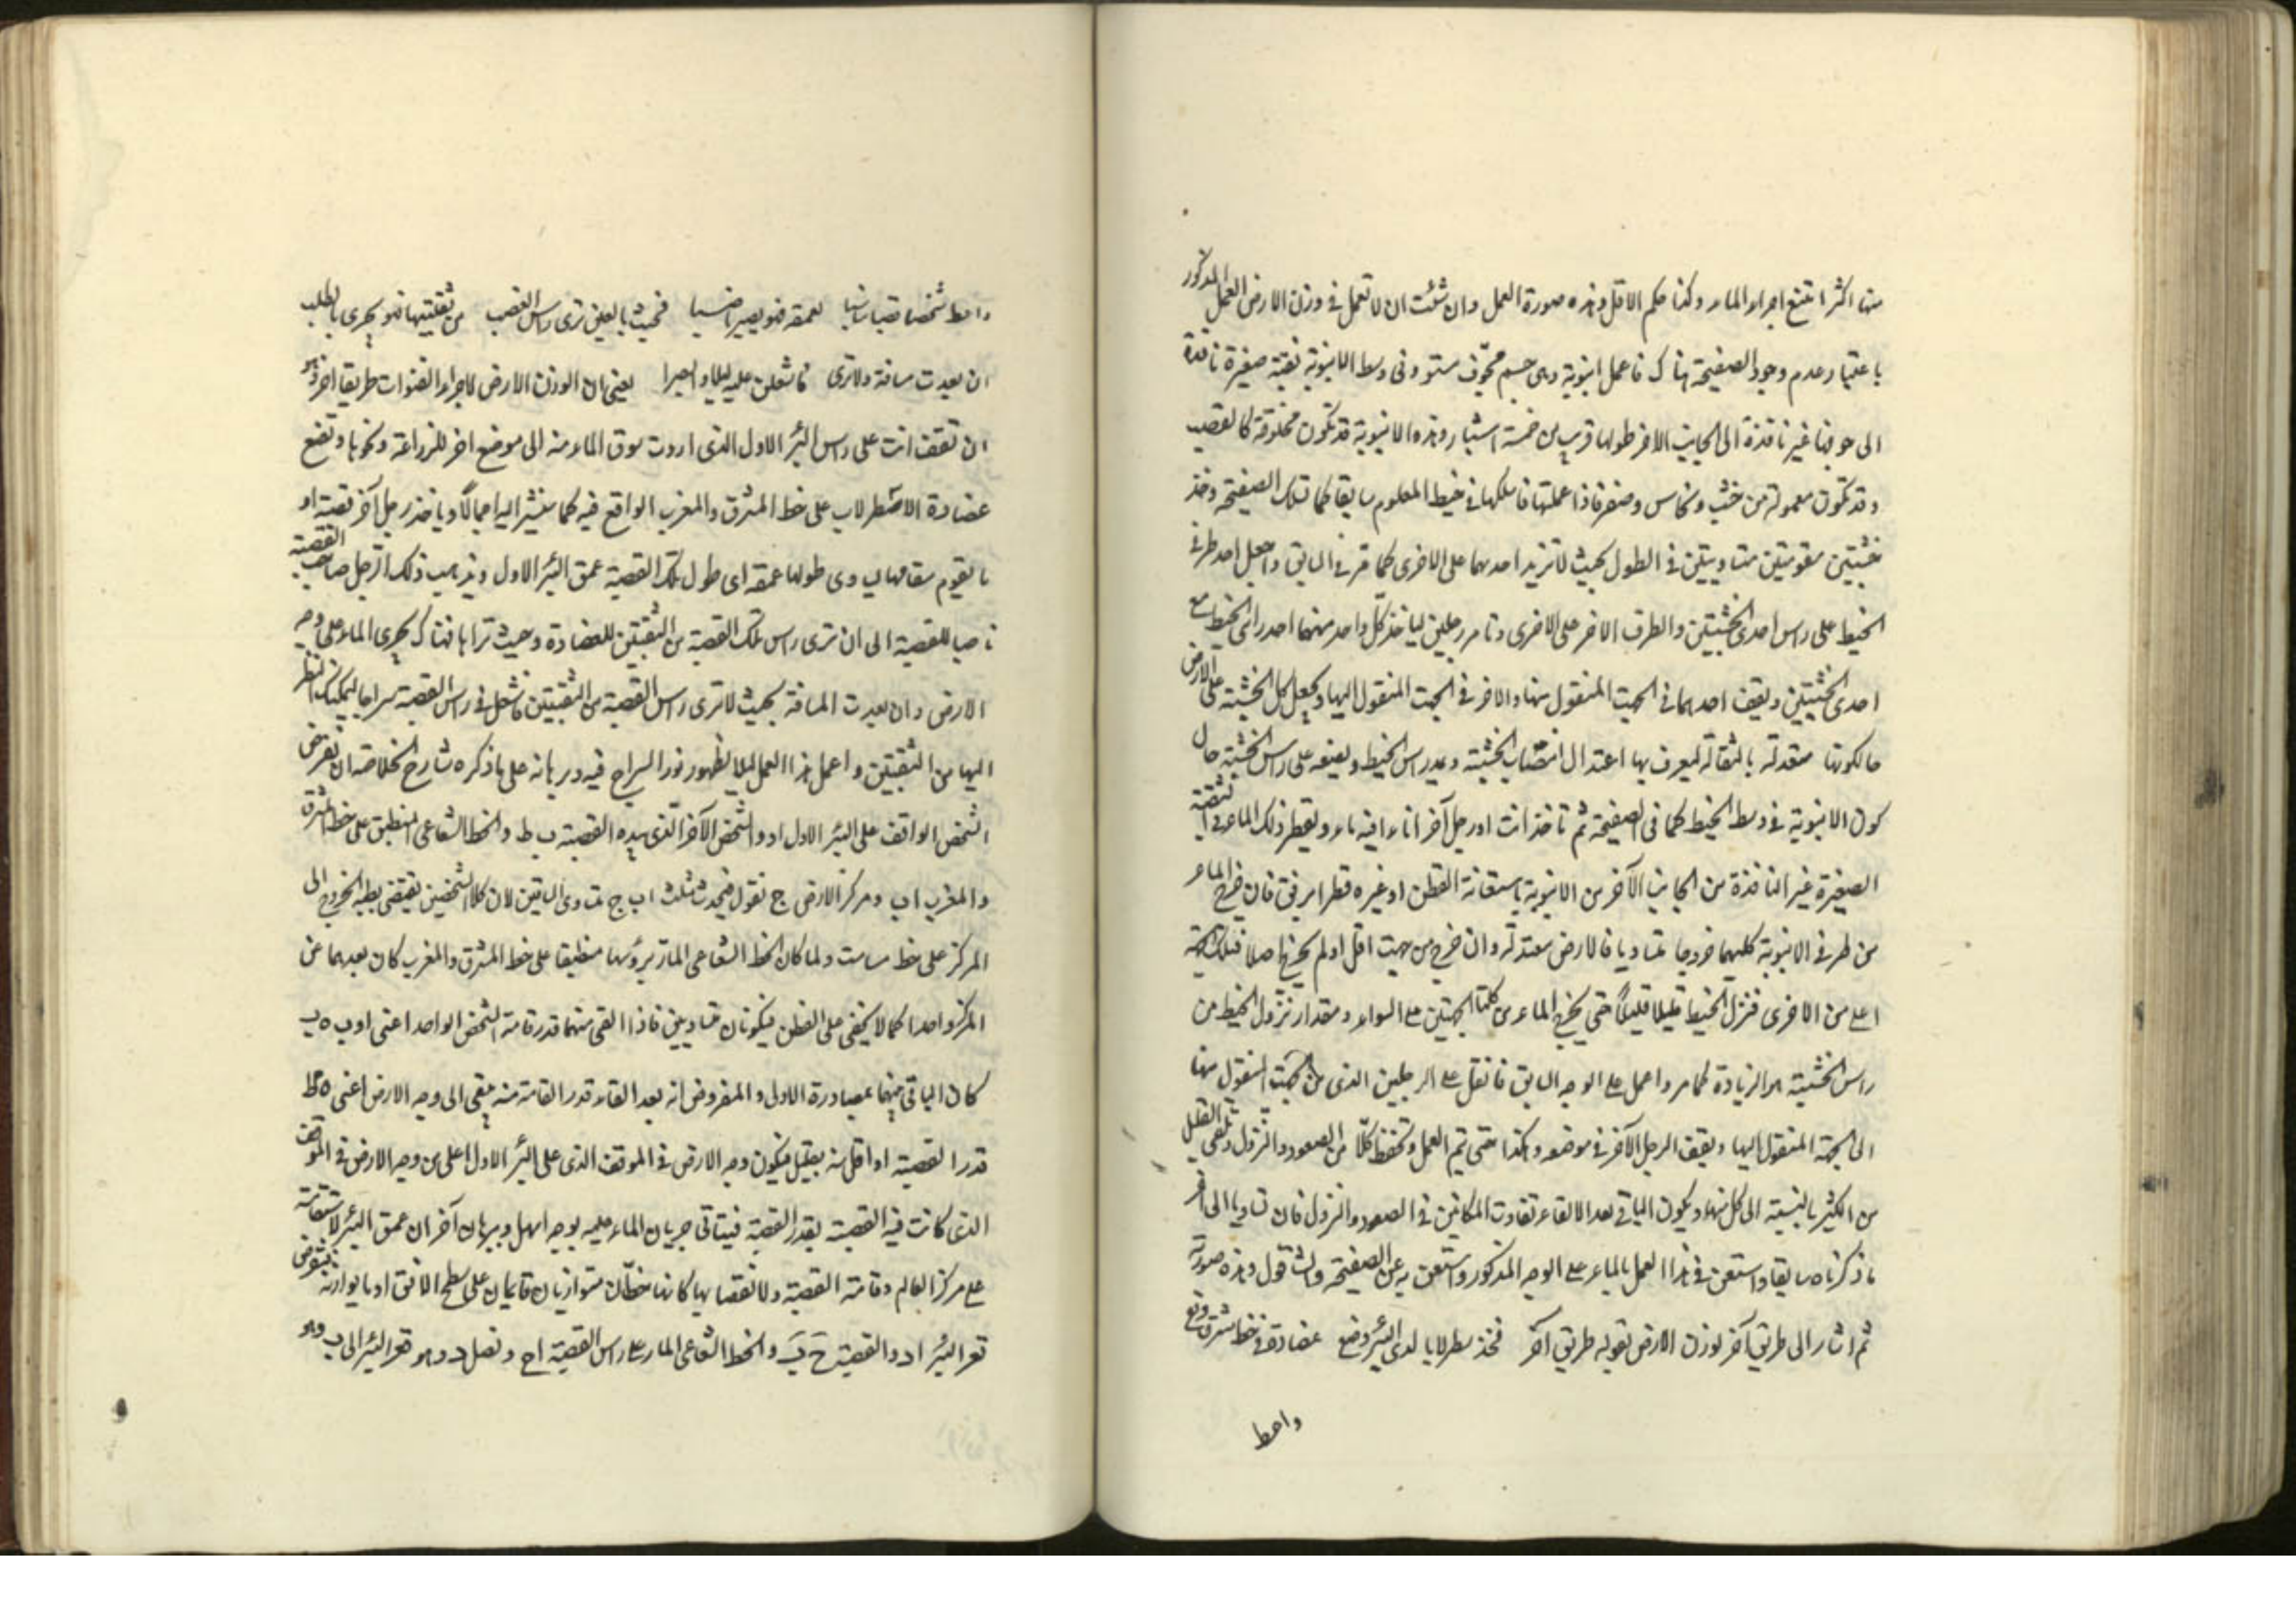 منها اكثر امتنع اجراء الماء وكذا حكم الاقل وهذه صورة العمل وان شئت ان لا تعمل في وزن الارض العمل المذكور
باعتبار عدم وجود الصفيحة هناك فاعمل انبوبة وهي جسم مجوف مستو وفى وسط الانبوبة ثقبة صغيرة نافذة
الى جوفها غير نافذة الى الجانب الاخر طولها قريب من خمسة اشبار وهذه الانبوبة قد تكون مخلوقة كالقصب
وقد تكون معمولة من خشب ونحاس وصفر فاذا عملتها فاسلكها في خيط المعلوم سابقا كما تسلك الصفيحة وخذ
خشبتين مقومتين متساويتين في الطول بحيث لا تزيد احدهما على الاخرى كما مر في السابق واجعل احد طرفي
الخيط على راس احدى الخشبتين والطرف الاخر على الاخرى وتامر رجلين لياخذ كل واحد منهما احد راسي الخيط مع
احدى الخشبتين ويقف احدهما في الجهة المنقول منها والاخر في الجهة المنقول اليها ويجعل كل الخشبة على الارض
حالكونها معتدلة بالثقالة ليعرف بها اعتدال انتصاب الخشبة ويمد راس الخيط ويضعه على راس الخشبة حال
كون الانبوبة في وسط الخيط كما في الصفيحة ثم تاخذ انت او رجل آخر اناء فيه ماء ويقطر ذلك الماء في الثقبة
الصغيرة غير النافذة من الجانب الآخر من الانبوبة باستعانة القطن او غيره قطرا برفق فان خرج الماء
من طرفي الانبوبة كليهما خروجا متساويا فالارض معتدلة وان خرج من جهة اقل او لم يخرج اصلا فتلك الجهة
اعلى من الاخرى فنزل الخيط قليلا قليلا حتى يخرج الماء من كلتا الجهتين على السواء ومقدار نزول الخيط من
راس الخشبة هو الزيادة كما مر واعمل على الوجه السابق فانقل على الرجلين الذى من الجهة المنقول منها
الى الجهة المنقول اليها ويقف الرجل الآخر في موضعه وهكذا حتى يتم العمل وتحفظ كلا من الصعود والنزول وتلقي القليل
من الكثير بالنسبة الى كل منهما ويكون الباقي بعد الالقاء تفاوت المكانين في الصعود والنزول فان تساويا الى آخر
ما ذكرناه سابقا واستعن في هذا العمل بالماء على الوجه المذكور واستعن به عن الصفيحة والشاقول وهذه صورته
ثم اشار الى طريق آخر لوزن الارض بقوله طريق آخر فخذ سطرلابا لدى البئر وضع عضادة في خط مشرق وقع
واعط
واعط شخصا قصبا مناسبا لعمقه فنو يصير ناصبا فحيث بالعين ترى راس القصب من ثقبتيها فنو يجرى بالطلب
ان بعدت مسافة ولا ترى فاشعلن عليه ليلا وابصرا يعني ان الوزن الارض لاجراء القنوات طريقا اخر وهو
ان تقف انت على راس البئر الاول الذى اردت سوق الماء منه الى موضع اخر للزراعة ونحوها وتضع
عضادة الاصطرلاب على خط المشرق والمغرب الواقع فيه كما سنشير اليه اجمالا وياخذ رجل آخر قصبة او
ما يقوم مقامها يساوى طولها عمقه اى طول تلك القصبة عمق البئر الاول ويذهب ذلك الرجل صاحب القصبة
ناصبا للقصبة الى ان ترى راس تلك القصبة من الثقبتين للعضادة وحيث تراها فهناك يجرى الماء على وجه
الارض وان بعدت المسافة بحيث لا ترى راس القصبة من الثقبتين فاشعل في راس القصبة سراجا ليمكنك النظر
اليها من الثقبتين واعمل هذا العمل ليلا لظهور نور السراج فيه وبرهانه على ما ذكره شارح الخلاصة ان نفرض
الشخص الواقف على البئر الاول اد والشخص الآخر الذى بيده القصبة ب ط والخط الشعاعي المنطبق على خط المشرق
والمغرب اب ومركز الارض ج نقول فيحدث مثلث اب ج متساوى الساقين لان كلا الشخصين يقتضى بطبعه الخروج الى
المركز على خط مسامت ولما كان الخط الشعاعي المار برؤسها منطبقا على خط المشرق والمغرب كان بعدهما عن
المركز واحدا كما لا يخفى على الفطن فيكونان متساويين فاذا القى منهما قدر قامة الشخص الواحد اعنى اد ب ه
كان الباقي منهما بمصادرة الاولى والمفروض انه بعد القاء قدر القامة منه يبقى الى وجه الارض اعنى ه ط
قدر القصبة او اقل منه بقليل فيكون وجه الارض في الموقف الذى على البئر الاول اعلى من وجه الارض في الموقف
الذى كانت فيه القصبة بقدر القصبة فيتاتى جريان الماء عليه بوجه اسهل وببرهان آخر ان عمق البئر لاستقامته
على مركز العالم وقامة القصبة ولانتصابها كانها خطان متوازيان قايمان على سطح الافق او ما يوازيه فنفرض
قعر البئر اد والقصبة ح ب والخط الشعاعي المار على راس القصبة اح ونصل د وهو قعر البئر الى ب وهو